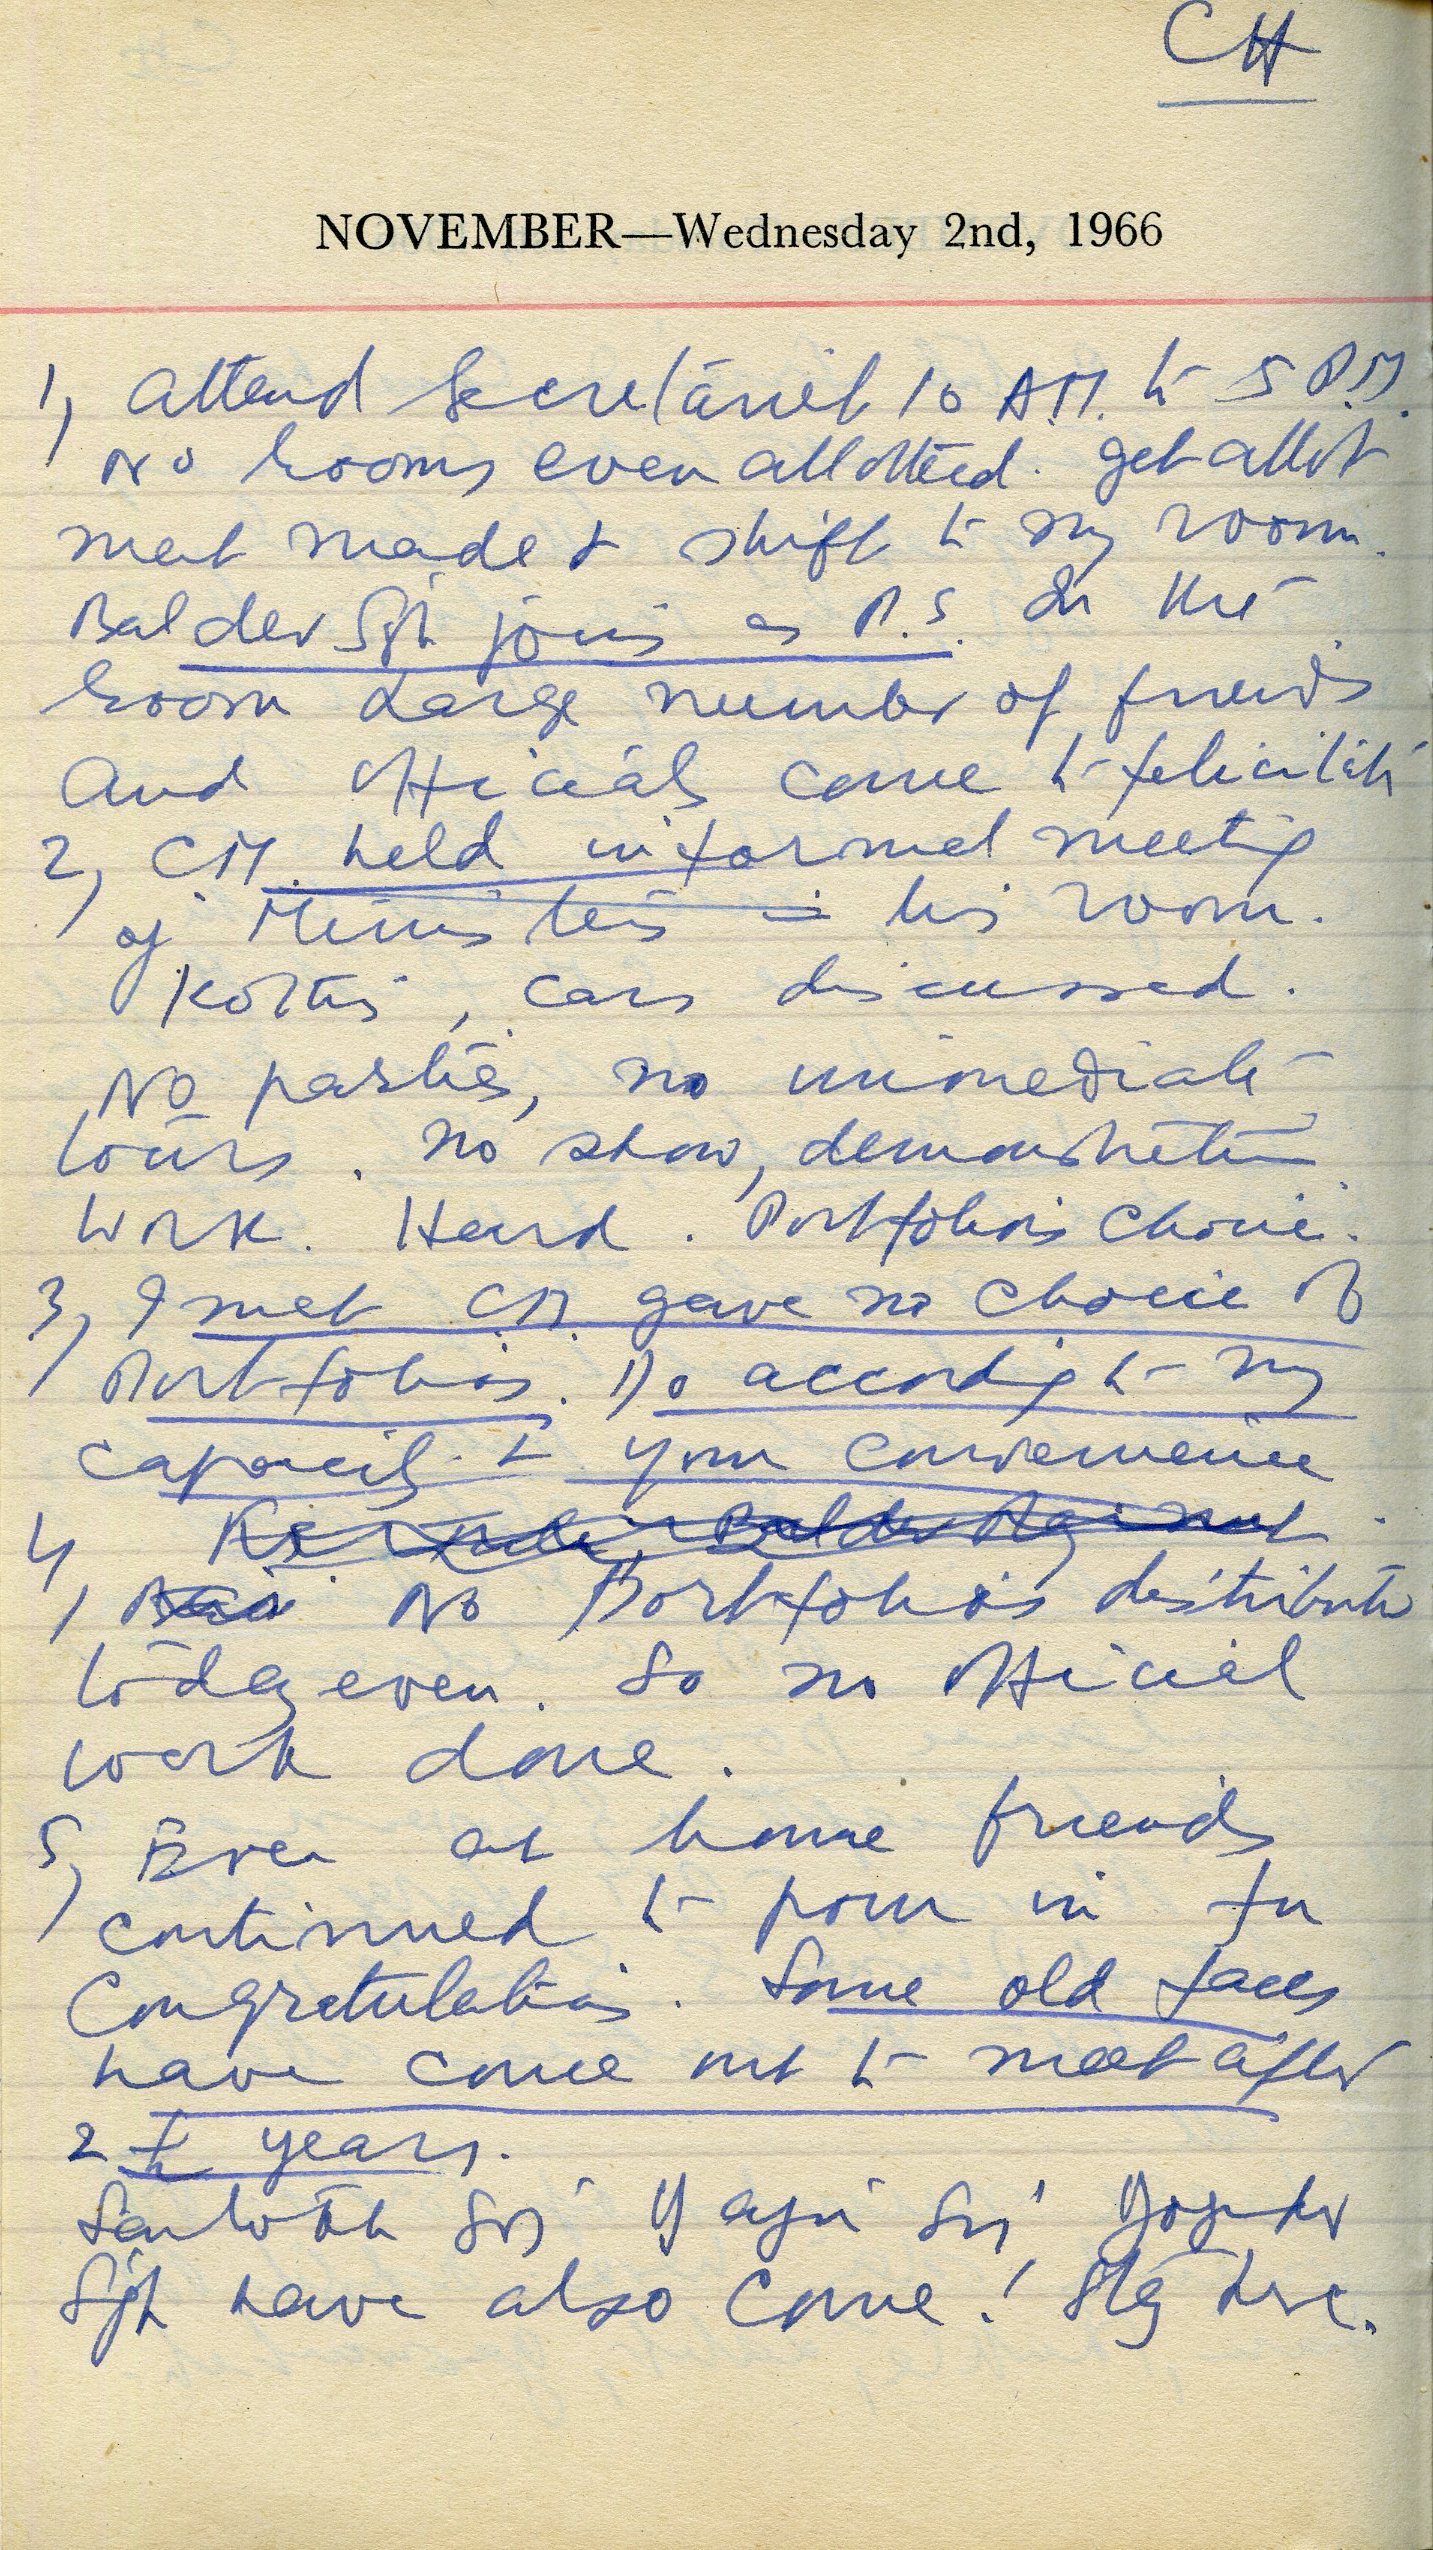 CH
NOVEMBER—Wednesday 2nd, 1966
1, Attend Secretariat 10 A.M. to 5 P.M.
No rooms even allotted. get allot
ment made & shift to my room.
Baldev Sgh joins as P.S. In the
room large number of friends
and officials come to felicitate
2, C.M. held informal meeting
of Ministers in his room.
Kothis, cars discussed.
No parties, no immediate
tours. No show, demonstration
Work. Hard. Portfolios choice.
3, I met C.M. gave no choice of
Portfolios. Do according to my
capacity & your convenience
4, No Portfolios distributed
today even. So no official
work done.
5, Even at home friends
continued to pour in for
Congratulations. Some old faces
have come out to meet after
2 ½ years.
Santokh Sgh Yogi Sgh
Sgh have also come! Stg here.